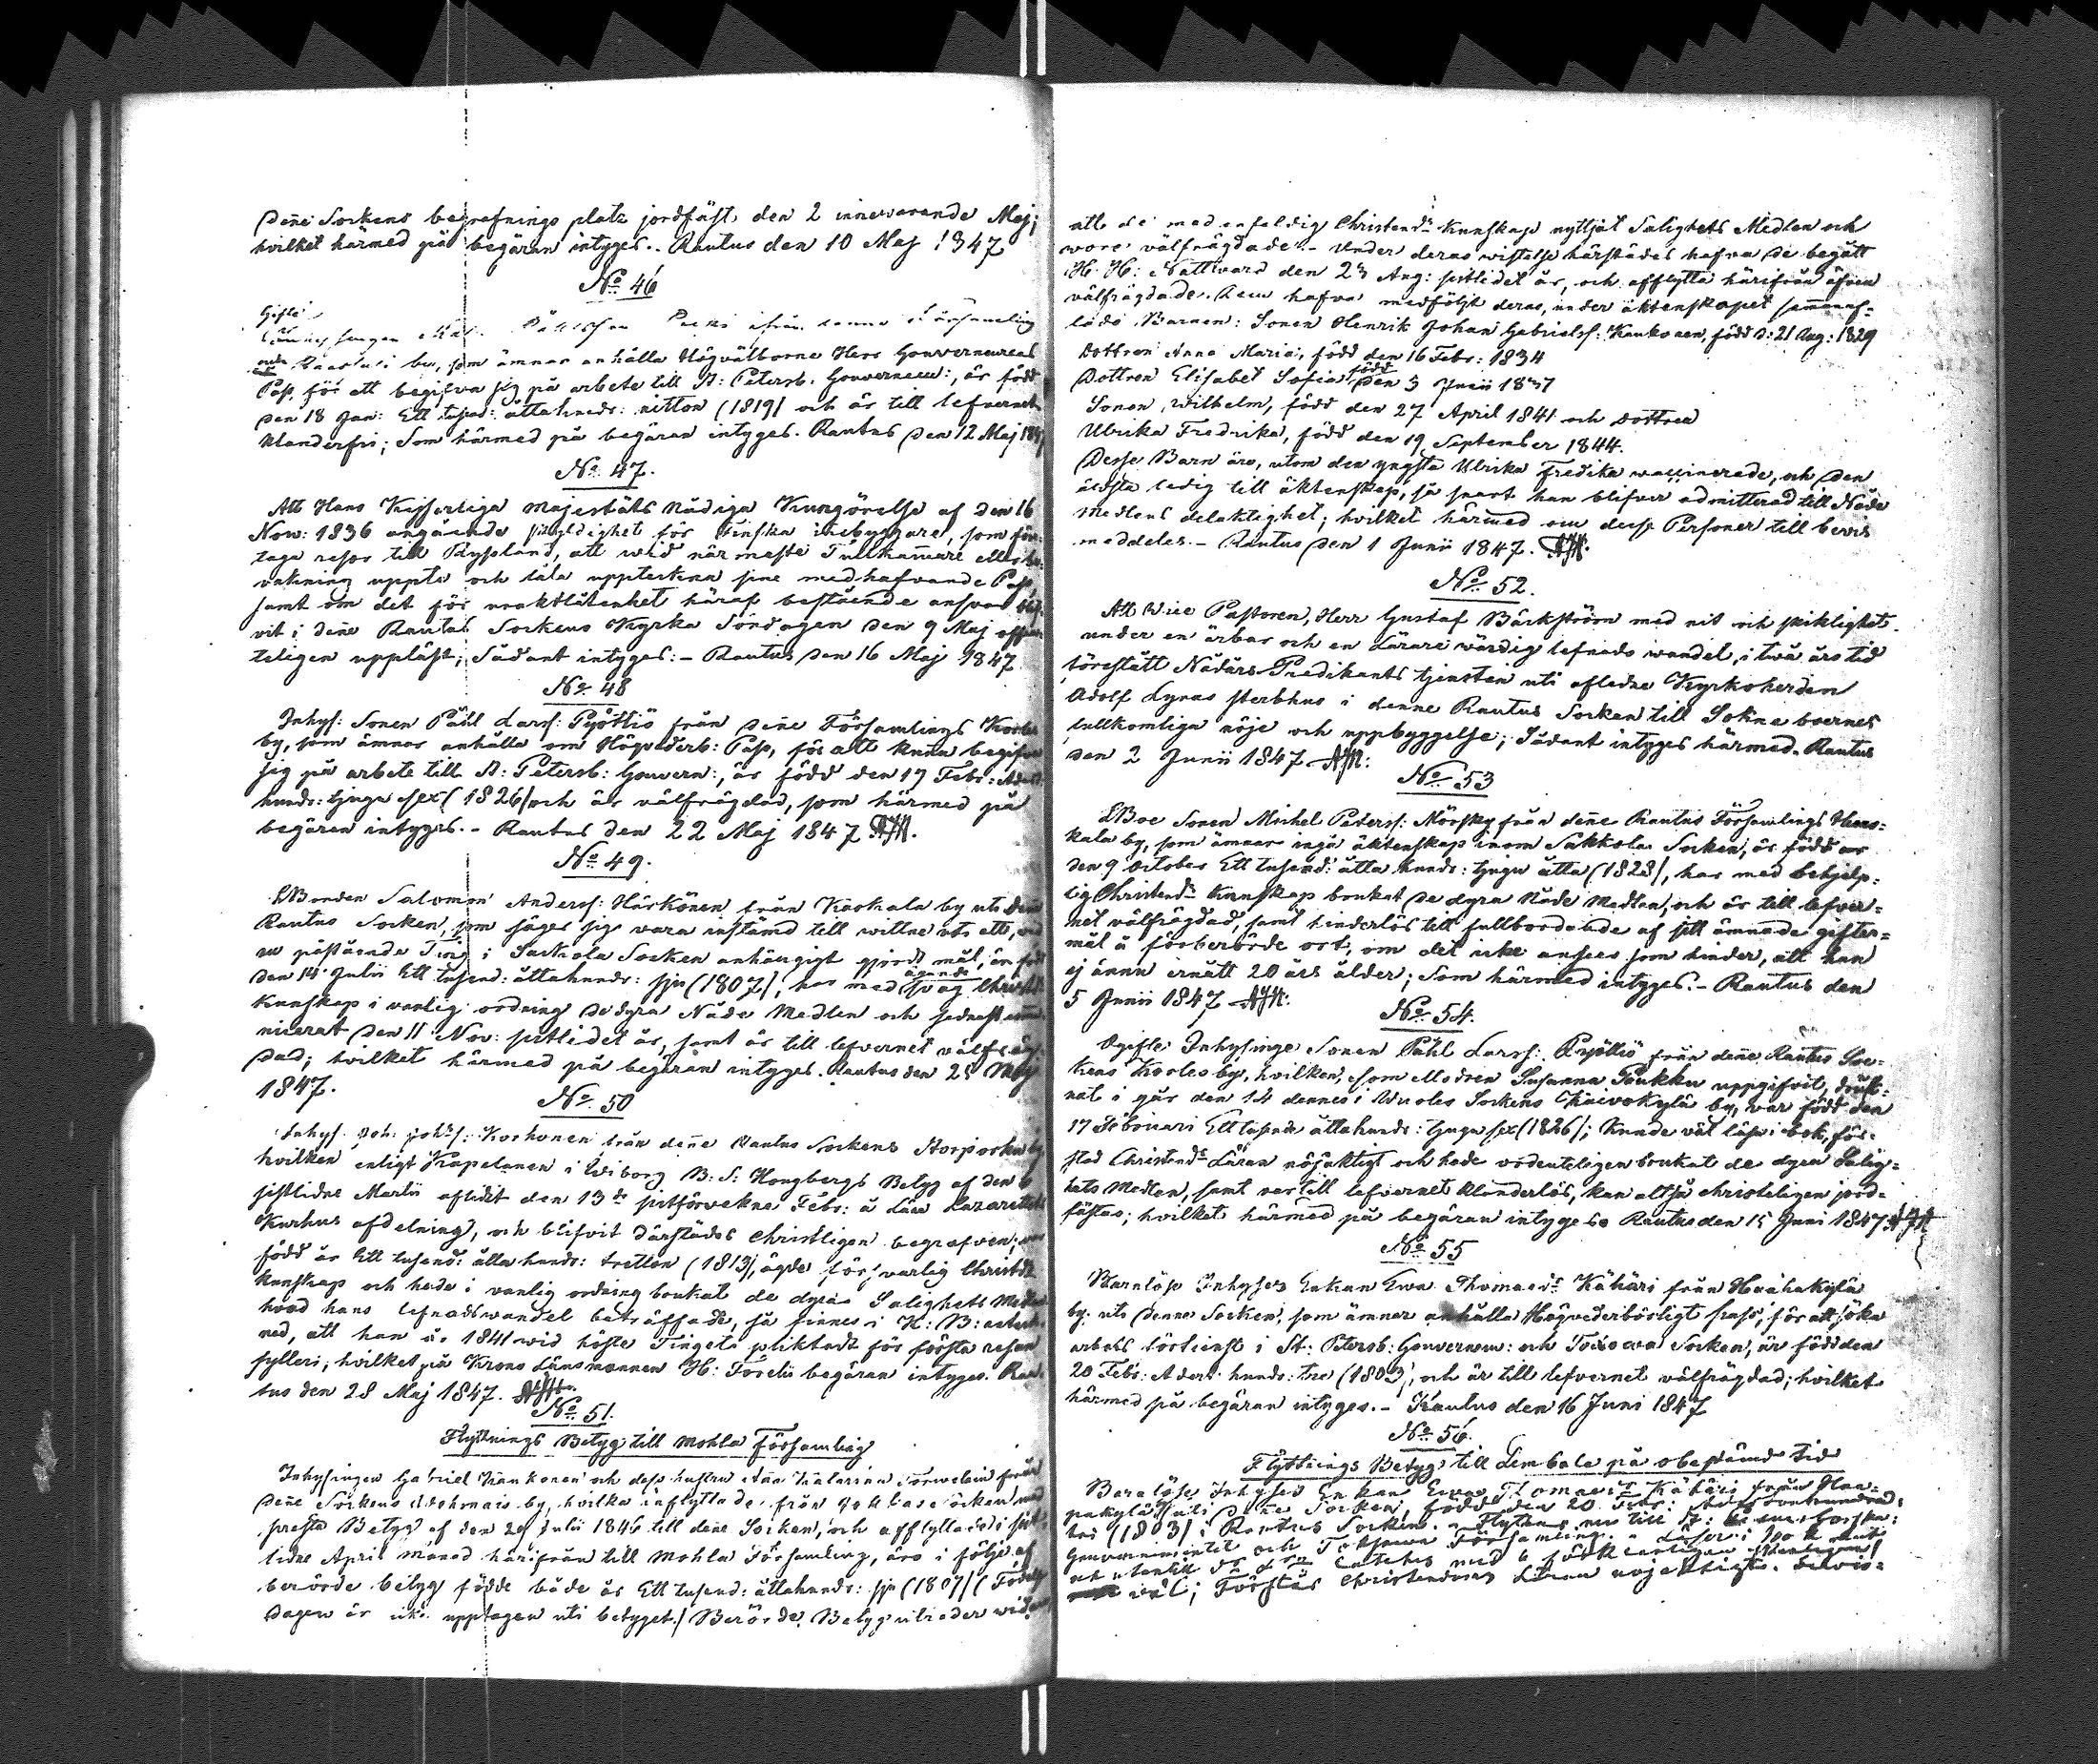 Denne Sockens begrafnings platz jordfäst den 2 innevarande Maj;
hvilket härmed på begäran intyges. Rautus den 10 Maj 1847
No 46
Gifte
Påhlsson från denna Församling
by, som ämnar anhålla Högvälborne Herr Gouverneurens
Pass, för att begifva sig på arbete till St: Petersb. Gouvernem:, är född
den 18 Jan: Ett tusend: åttahundr: nitton (1819) och är till lefvernet
klanderfri; Som härmed på begäran intyges. Rautus den 12 Maj
No 47.
Att Hans Kejserliga Majestäts Nådiga Kungörelse af den 16
Nov: 1836 angående skyldighet för Finska innebyggare, som före
taga resor till Ryssland, att wid närmaste Tullkammare eller be
vakning uppte och låta uppteckna sine medhafvande Pass,
samt om det för uraktlåtenhet häraf bestående ansvar bli
vit i denne Rautus Sockens Kyrka Söndagen den 9 Maj offen
teligen uppläst; Sådant intyges: - Rautus den 16 Maj 1847
No 48
Inhys: Sonen Påhl Larss: Pyöttiö från denne Församlings Korles
by, som ämnar anhålla om Högvederb: Pass, för att kunna begifva
sig på arbete till St: Petersb: Gouvern:, är född den 17 Febr:
hundr: tjugu sex (1826) och är välfrägdad, som härmed på
begäran intyges. - Rautus den 22 Maj 1847
No 49.
Bonden Salomon Anderss: Härkönen från Kaskala by uti denne
Rautus Socken, som säges sig vara instämd till wittne uti ett, wid
nu påstående Ting i Sackola Socken anhängigt gjordt mål, är född
den 14 Julii Ett tusend: åttahundr: sju (1807), har med
ägande
svag Christd:
kunskap i vanlig ordning de dyra Nåde Medlen och sednast com
nicerat den 11 Nov: sistlidet år, samt är till lefvernet välfräg
dad; hvilket härmed på begäran intyges. Rautus den 25 Maj
1847.
No 50
Inhys. Joh: Johs: Korhonen från denne Rautus Sockens by
hvilken enligt Kapelanen i Wiborg B. S: Hougbergs Betyg af den 6
sistlidne Martii aflidit den 13de sistförvekne Febr: å Läns Lazarettets
Kurhus afdelning, och blifvit därstädes Christligen begrafven;
född år Ett tusend: åtta hundr: tretton (1813), ägde försvarlig Christd:
kunskap och hade i vanlig ordning brukat de dyra Salighets Medlen
hvad hans lefnadswandel beträffade, så finnes i K: B: anteck
nad, att han år 1841 wid höste Tinget pliktadt för första resan
fylleri; hvilket på Krono Länsmannen H: Forelii begäran intyges. Rau
tus den 28 Maj 1847.
No 51.
Flyttnings Betyg till Mohla Församling
Inhysingen Gabriel Kaukonen och dess hustru från
denne Sockens by, hvilka inflyttade från Socken med
presta Betyg af den 29 Julii 1846 till denne Socken, och afflyttade i sist
lidne April månad härifrån till Mohla Församling, äro i följe af
berörde betyg födde både år Ett tusend: åttahundr: sju (1807) (Födelse
dagen är icke upptagen uti betyget.) Berörde Betyg utvider wid
att de med enfaldig Christend: kunskap nyttjat Salighets Medlen och
wore välfrägdade. - Under deras wistelse härstädes hafva de begått
H. H: Nattward den 23 Aug: sistlidet år, och afflytta härifrån äfven
välfrägdade. Dem hafva medföljt deras, under äktenskapet samman af-
lade Barnen: Sonen Henrik Johan Gabrielss: Kaukonen, född d: 21 Aug: 1829
Dottren Anna Maria, född den 16 Febr: 1834
född
Dottren Elisabet Sofia den 3 Junii 1837
Sonen Wilhelm, född den 27 April 1841 och Dottren
Ulrika Fredrika, född den 19 September 1844.
Desse Barn äro, utom den yngsta Ulrika Fredika waccinerade, och den
äldsta ledig till äktenskap, så snart han blifver admitterad till Nåde
Medlens delaktighet; hvilket härmed om desse Personer till bevis
meddeles. - Rautus den 1 Junii 1847.
No 52.
Att Wice Pastoren, Herr Gustaf Bäckström med nit och skiklighet
under en ärbar och en Lärare wärdig lefnads wandel, i twå års tid
förestått Nådårs-Predikants tjensten uti afledne Kyrkoherden
Adolf Lyras sterbhus i denne Rautus Socken till Sokne boernes
fullkomliga nöje och uppbyggelse; Sådant intyges härmed. Rautus
den 2 Junii 1847
No 53
Boe Sonen Michel Peterss: Mörsky från denne Rautus Församlings
kala by, som ämnar ingå äktenskap inom Sakkola Socken, är född
den 9 october Ett tusend: åtta hundr: tjugu åtta (1828), har med behjelp-
lig Christend: kunskap brukat de dyra Nåde Medlen, och är till lefver-
net välfrägdad, samt hinderlös till fullbordande af sitt ämnade gifter-
mål å förberörde ort, om det icke anses som hinder, att han
ej ännu ernått 20 års ålder; Som härmed intyges. - Rautus den
5 Junii 1847
No 54.
Ogifte Inhysinge Sonen Påhl Larss: Pyöttiö från denne Rautus Soc-
kens Korles by, hvilken, som Modren Susanna Paukku uppgifvit, druk-
nat i går den 14 dennes i Wuoles Sockens Kaivokylä by, war född den
17 Februari Ett tusende åttahundr: tjugu sex (1826); Kunde väl läsa i bok, för-
stod Christend: Läran nöjaktigt och hade vördnteligen brukat de dyra Salig-
hets Medlen, samt var till lefvernet klanderlös, kan altså christeligen jord-
fästas; hvilket härmed på begäran intyges. Rautus den 15 Juni 1847
No 55
Barnlöse Inhyses Enkan Ewa Thomasdr Kähäri från Haapakylä
by uti denne Socken, som ämnar anhålla Högvederbörligt pass, för att söka
arbets förtienst i St: Petersb: Gouvernem: och Socken, är född den
20 Febr: Adert: hundr: tre (1803), och är till lefvernet välfrägdad; hvilket
härmed på begäran intyges. - Rautus den 16 Juni 1847
No 56.
Flyttnings Betyg till Lembala på obestämd tid
Barnlöse Inhyses Enkan Ewa Thomasdr Kähäri från Haa-
pakylä uti denne Socken, född den 20 Febr:
tre (1803) i Rautus Socken. Flyttar nu till St:
Gouvernementet och Toksowa Församling. Läser i bok
och utantill Catekes med
väl; Förstår Christendoms Läran nöjaktigt.